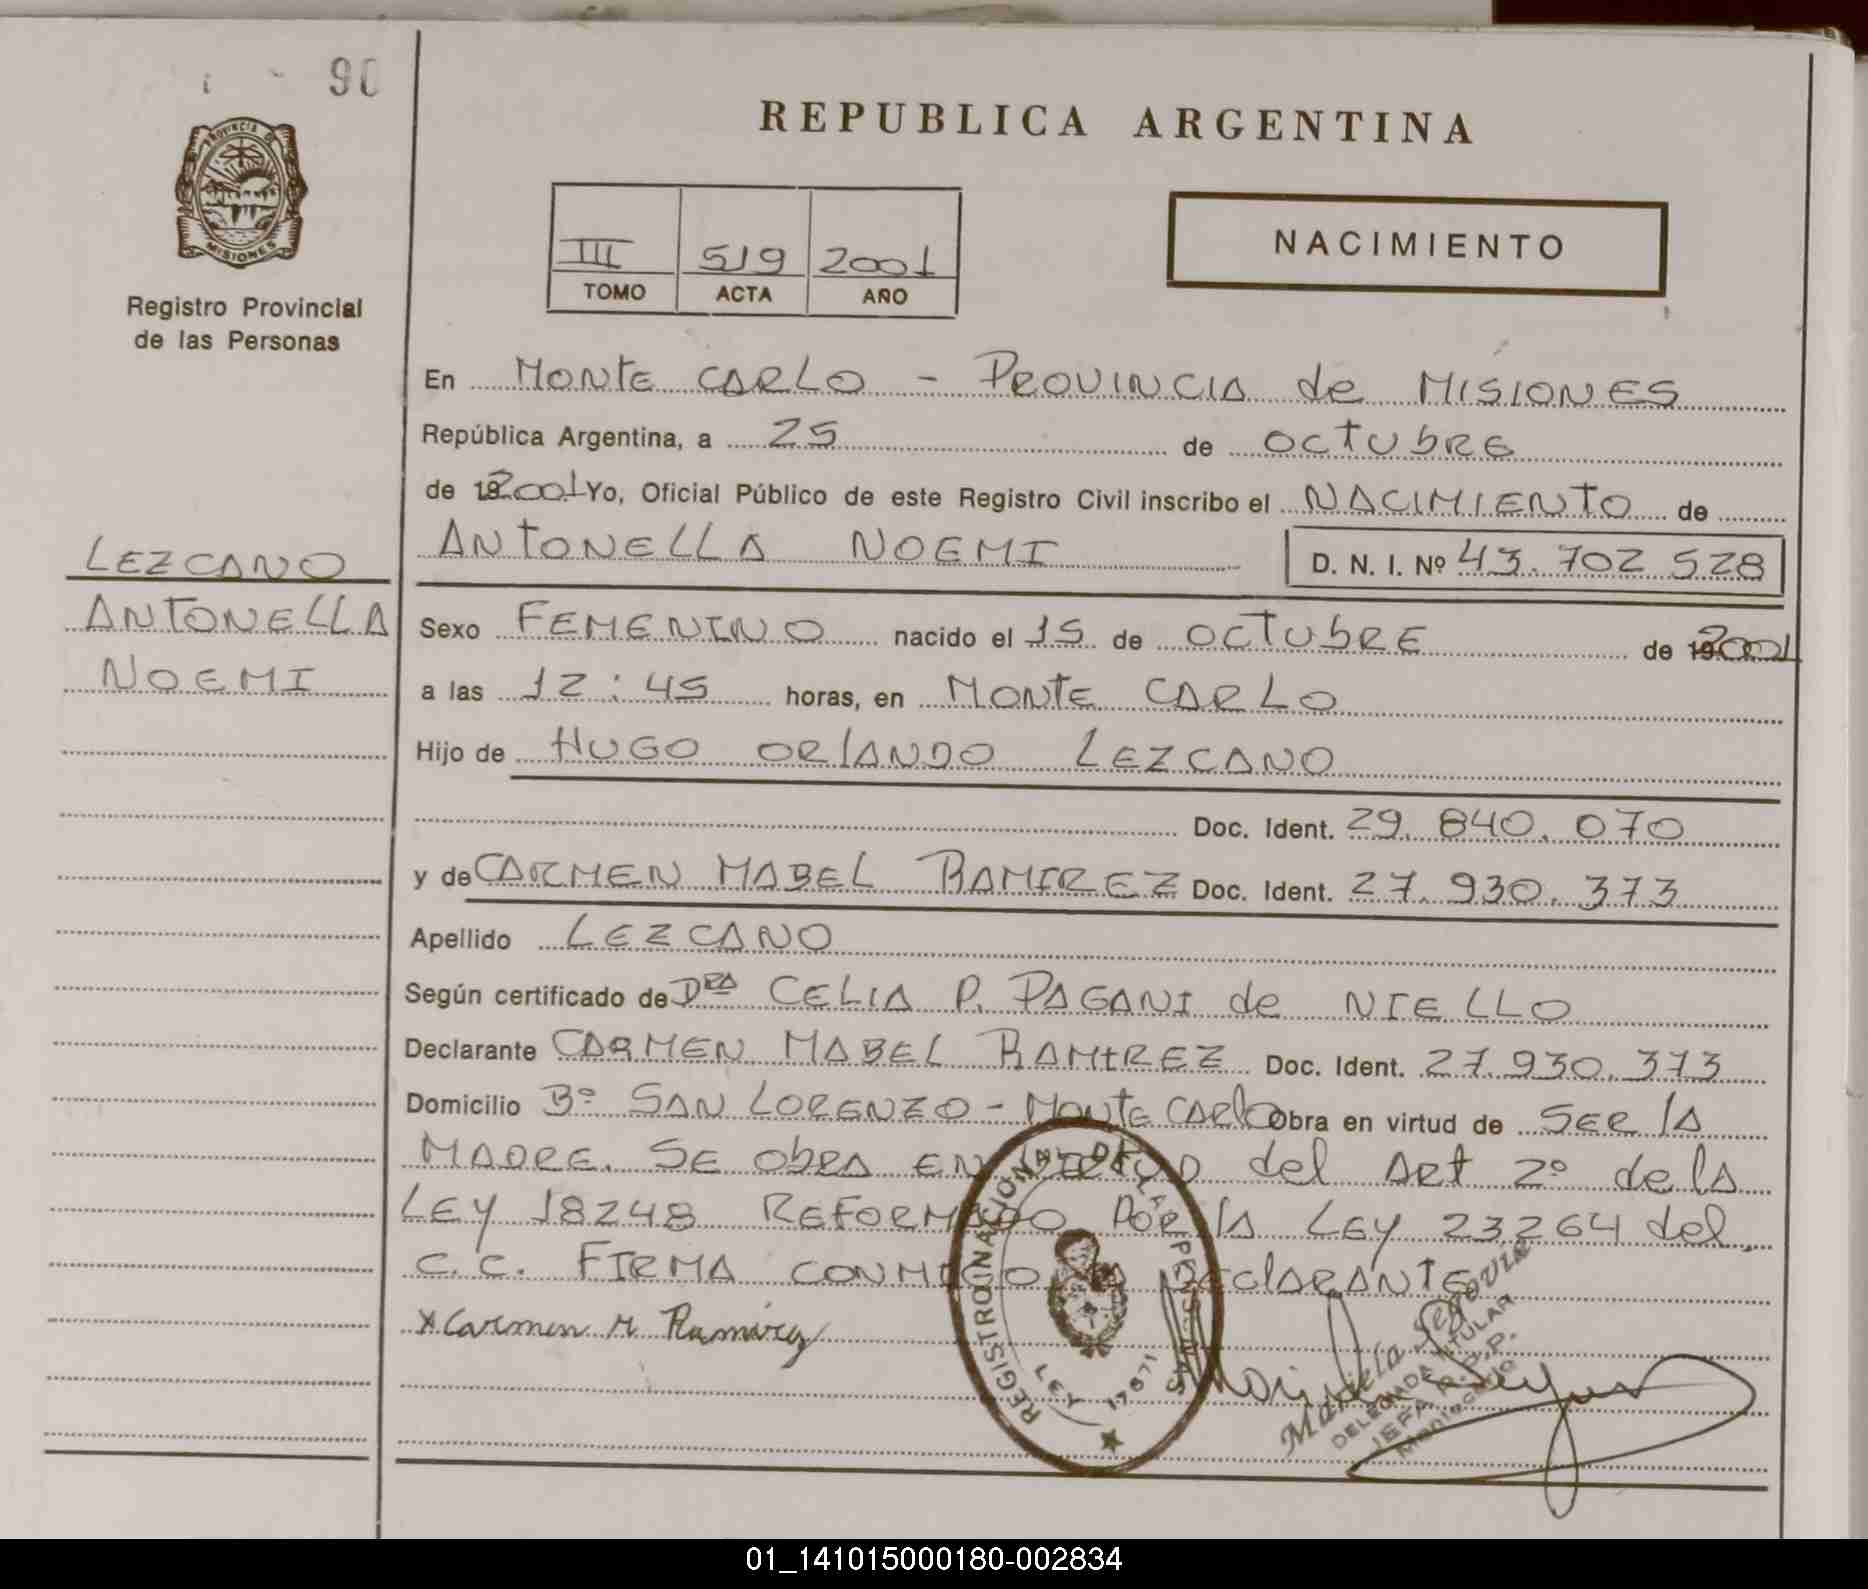 90
PROVINCIA DE
MISIONES
Registro Provincial
de las Personas
REPUBLICA ARGENTINA
III 519 2001
TOMO ACTA AÑO
NACIMIENTO
En MONTE CARLO - PROVINCIA de MISIONES
República Argentina, a 25 de OCTUBRE
de 192001 Yo, Oficial Público de este Registro Civil inscribo el NACIMIENTO de
ANTONELLA NOEMI D. N. I. Nº 43.702 528
LEZCANO
ANTONELLA
NOEMI
Sexo FEMENINO nacido el 15 de OCTUBRE de 192001
a las 12:45 horas, en MONTE CARLO
Hijo de HUGO ORLANDO LEZCANO
Doc. Ident. 29.840.070
y de CARMEN MABEL RAMIREZ Doc. Ident. 27.930.373
Apellido LEZCANO
Según certificado de DRA CELIA P. PAGANI de NIELLO
Declarante CARMEN MABEL RAMIREZ Doc. Ident. 27.930.373
Domicilio Bº SAN LORENZO - MONTE CARLO Obra en virtud de SER LA
MADRE. SE OBRA EN VIRTUD del ART 2º de la
LEY 18248 REFORMADO POR LA LEY 23264 del
C.C. FIRMA CONMIGO LA DECLARANTE
X Carmen M Ramirez
REGISTRO NACIONAL DE LAS PERSONAS
LEY 17671
Mariela Segovia
DELEGADA TITULAR
JEFA R.P.P.
01_141015000180-002834